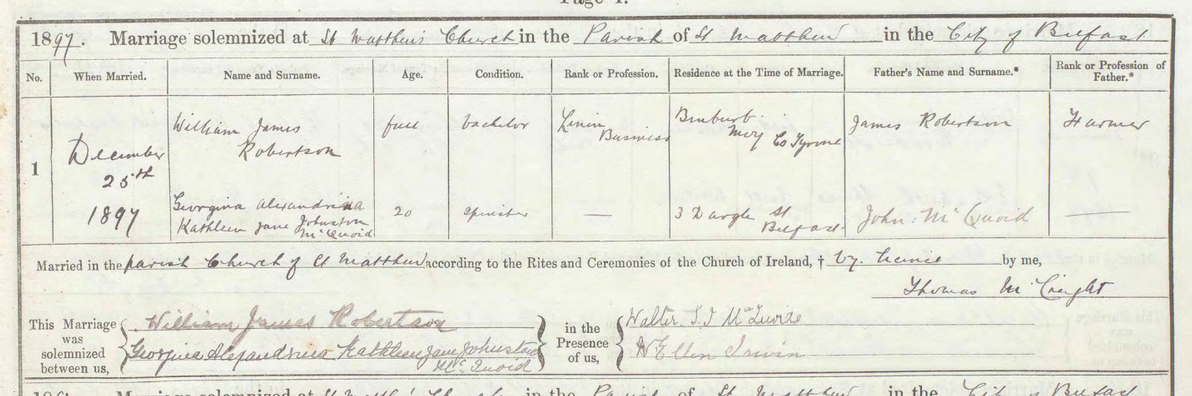 Page 1.
1897. Marriage solemnized at St Matthew's Church in the Parish of St Matthew in the City of Belfast
No. When Married. Name and Surname. Age. Condition. Rank or Profession. Residence at the Time of Marriage. Father's Name and Surname.* Rank or Profession of Father.*
1 December 25th 1897
William James Robertson full bachelor Linin Business Benburb Moy Co Tyrone James Robertson Farmer
Georgina Alexandrina Kathleen Jane Johnston McQuoid 20 spinster — 3 Dargle St Belfast. John McQuoid —
Married in the parish Church of St Matthew according to the Rites and Ceremonies of the Church of Ireland, † by license by me,
Thomas McCreight
This Marriage was solemnized between us, { William James Robertson } in the Presence of us, { Walter
Georgina Alexandrina Kathleen Jane Johnston McQuoid Ellen Irwin
Marriage solemnized at St Matthew's Church in the Parish of St Matthew in the City of Belfast